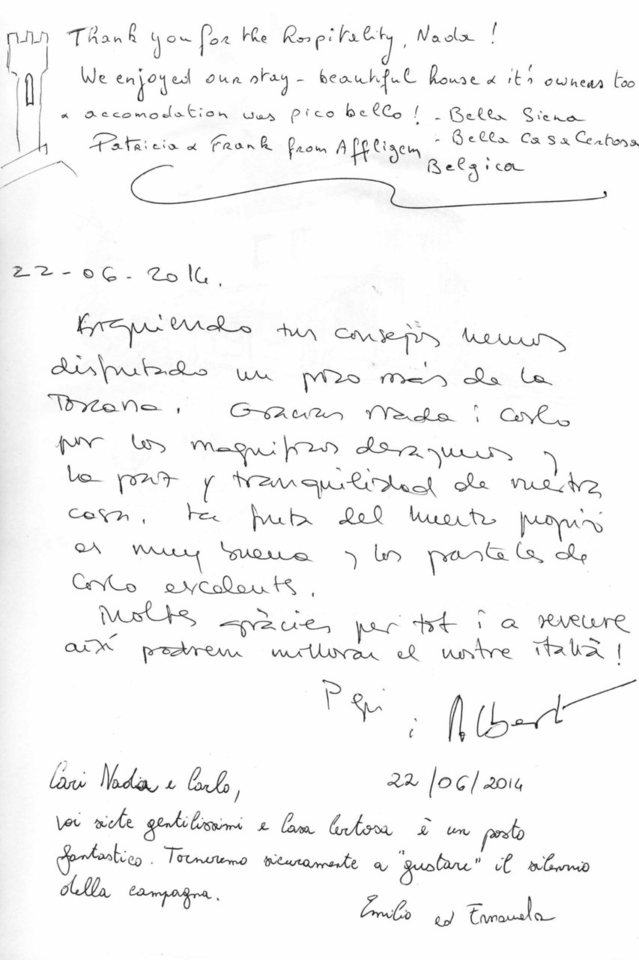 Thank you for the hospitality, Nada!
We enjoyed our stay - beautiful house & it's owners too
& accomodation was pico bello! - Bella Siena
Patricia & Frank from Affligem - Bella Casa Certosa
Belgica
22-06-2014.
tus consejos hemos
disfrutado un poco más de la
Toscana. Gracias Nada i Carlo
por los magnificos desayunos y
la paz y tranquilidad de vuestra
casa. La fruta del huerto propio
es muy buena y los pasteles de
Carlo excelents.
Moltes gràcies per tot i a reveure
així podrem millorar el nostre italià!
Pepi i Albert
Cari Nada e Carlo, 22/06/2014
voi siete gentilissimi e Casa Certosa è un posto
fantastico. Torneremo sicuramente a "gustare" il silenzio
della campagna.
Emilio ed Emanuela